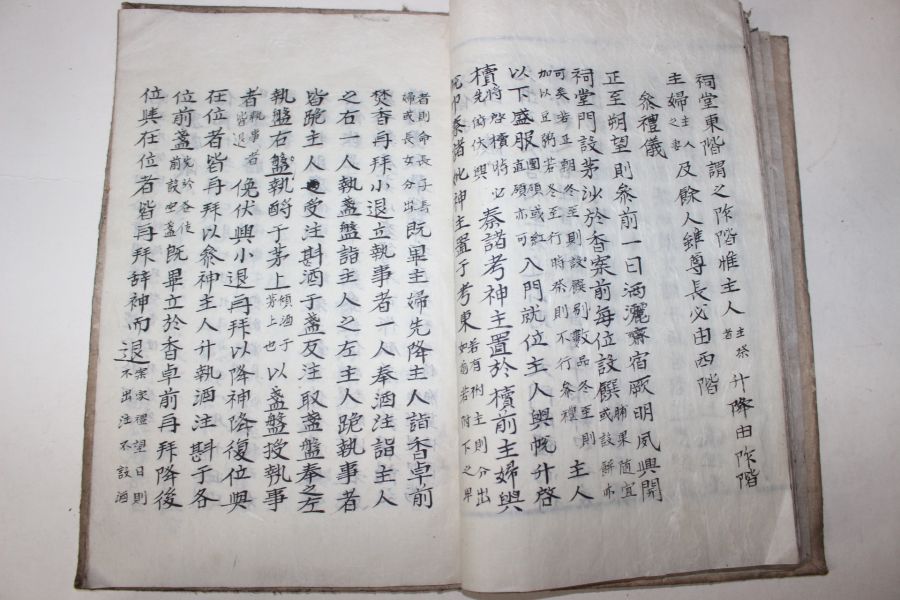 祠堂東階謂之阼階惟主人主祭者升降由阼階
主婦主人之妻及餘人雖尊長必由西階
參禮儀
正至朔望則參前一日洒灑齋宿厥明夙興開
祠堂門設茅沙於香案前每位設饌脯果随宜或設餅亦
可矣若正朝冬至則設饌別數品冬至則加以豆粥若冬至行時祭則不行參禮主人
以下盛服團領或紅直領亦可入門就位主人與帨升啓
櫝將啓櫝時必先俯伏興奉諸考神主置於櫝前主婦與
奉諸妣神主置于考東若有祔主則分出如前若祔下之卑
者則命長子長婦或長女分出既畢主婦先降主人詣香卓前
焚香再拜小退立執事者一人奉酒注詣主人
之右一人執盞盤詣主人之左主人跪執事者
皆跪主人受注斟酒于盞反注取盞盤奉之左
執盤右盤執酹于茅上傾酒于茅上也以盞盤授執事
者執事者皆退俛伏興小退再拜以降神降復位與
在位者皆再拜以參神主人升執酒注斟于各
位前盞前設空盞既畢立於香卓前再拜降後
位與在位者皆再拜辞神而退宗家禮望日則不出注不設酒